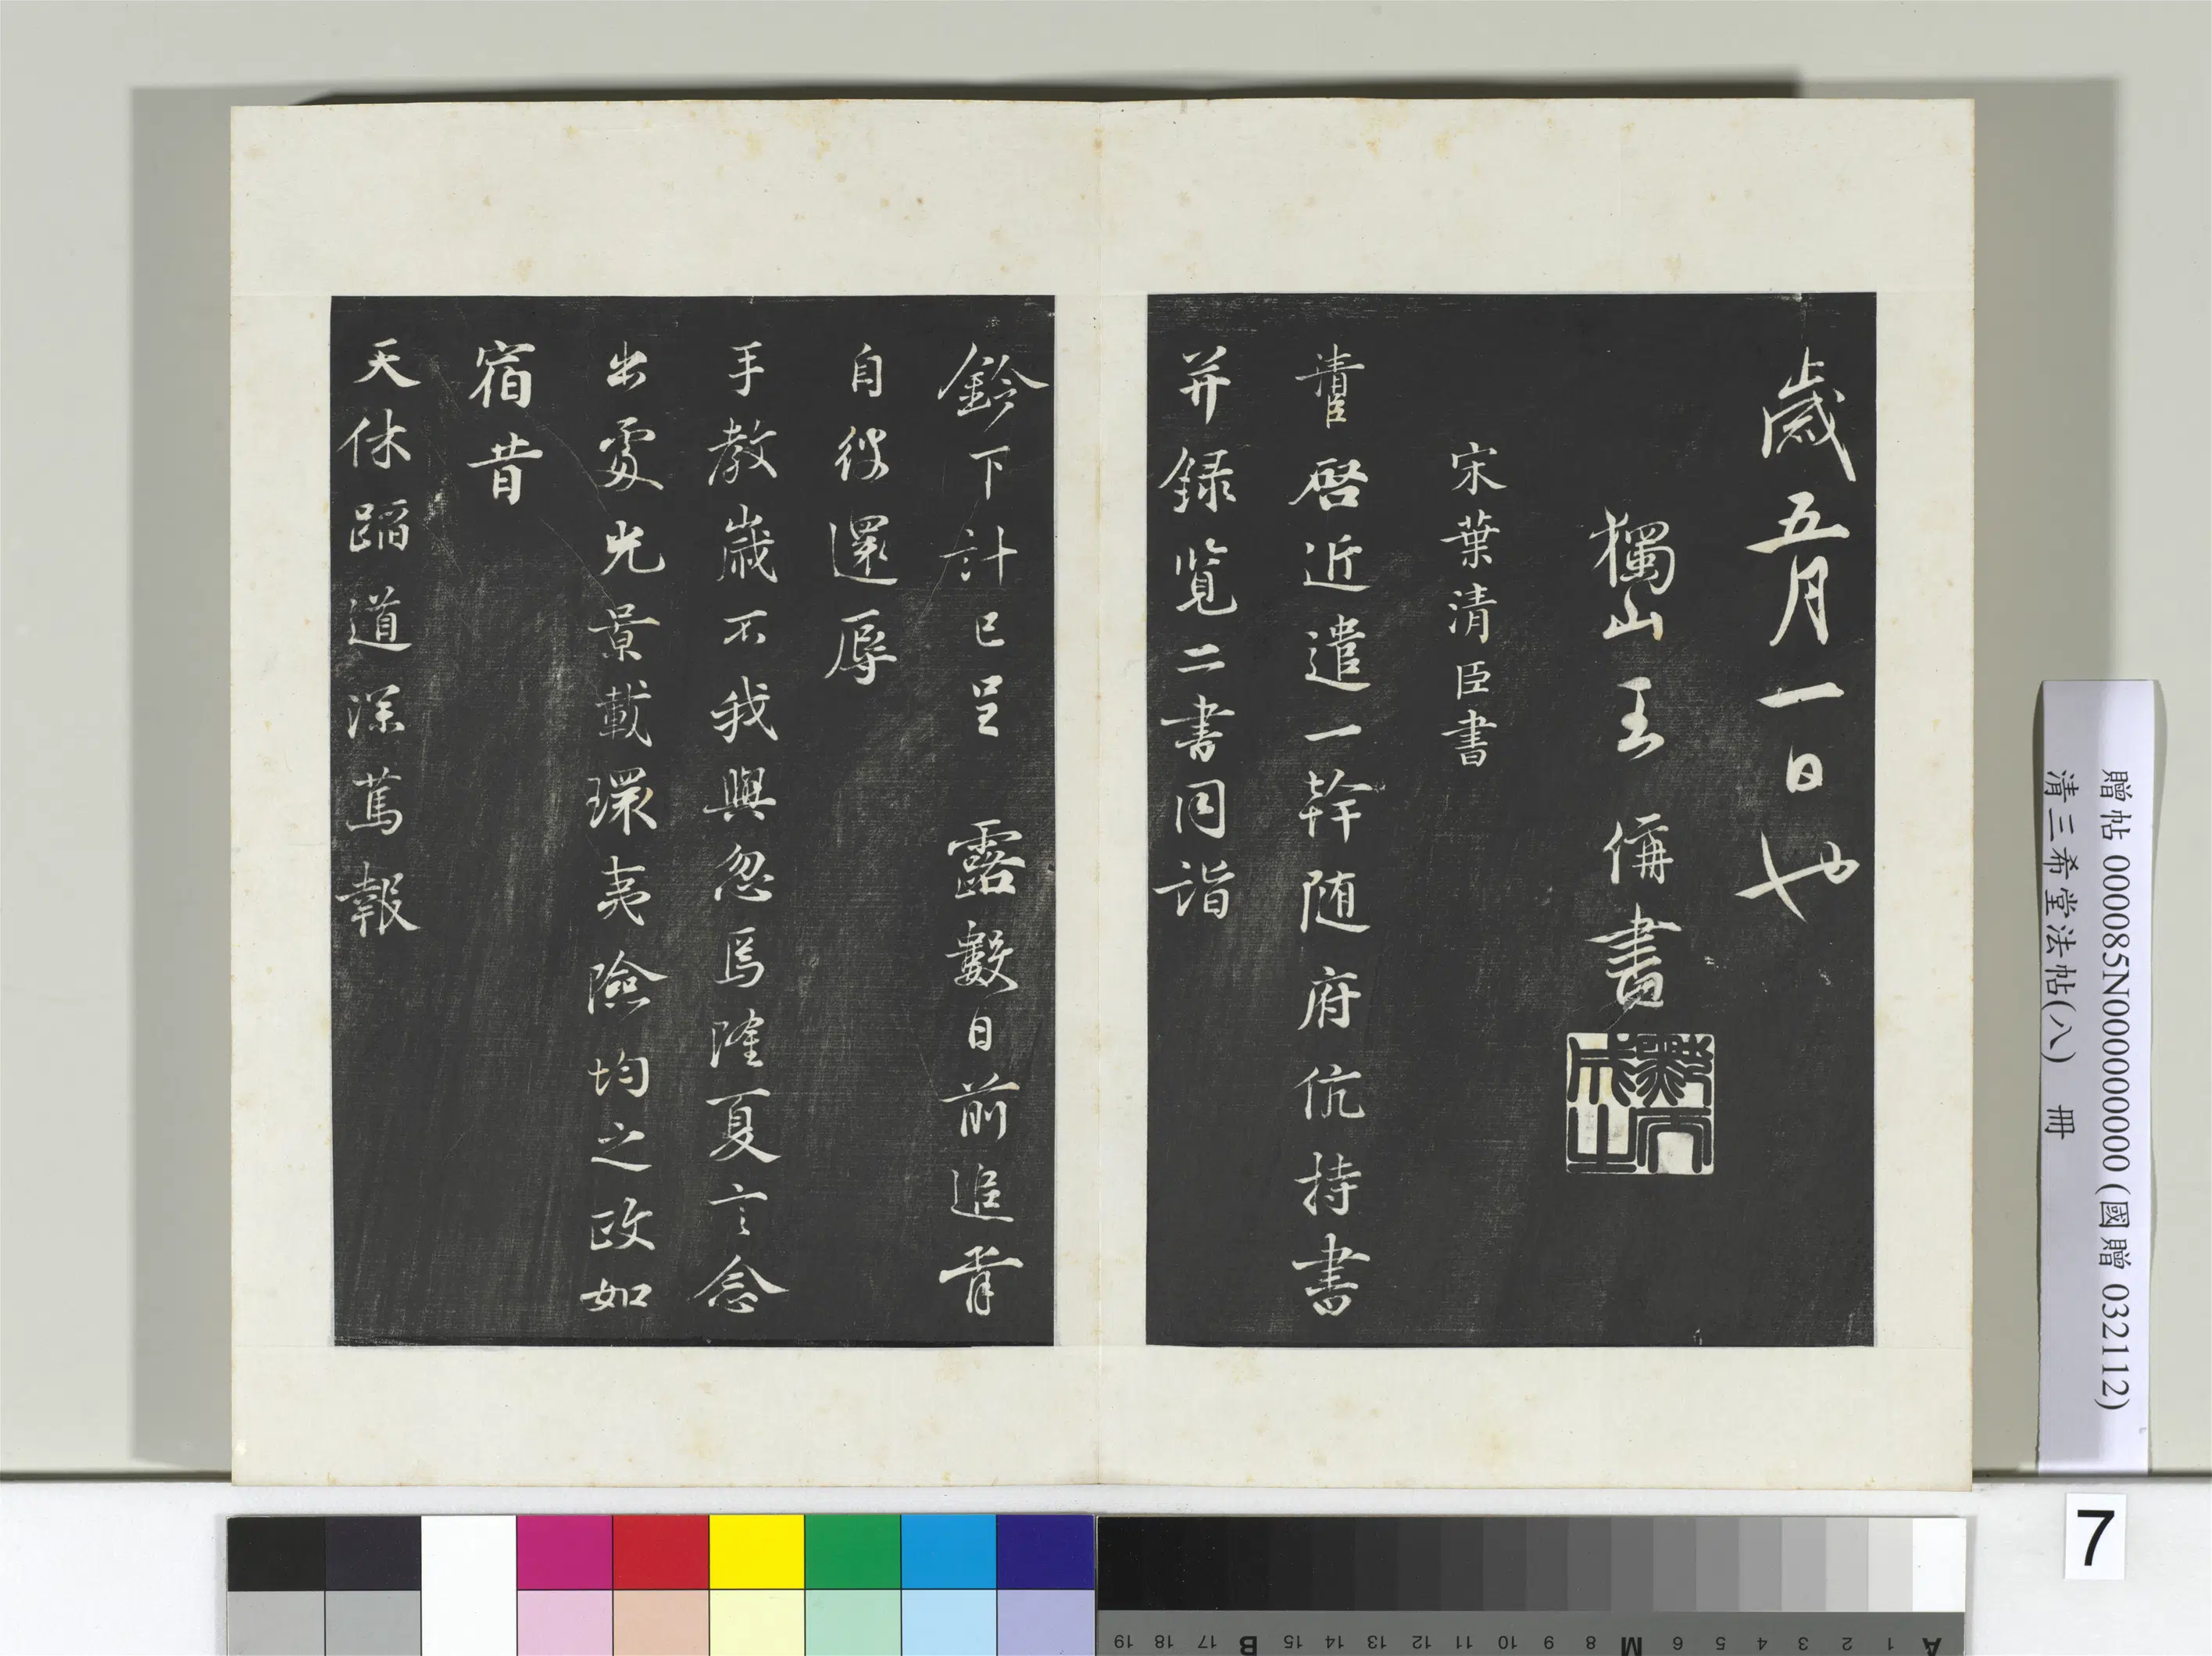 歲五月一日也
獨山王俌書
宋葉清臣書
清臣啓近遣一幹随府伉持書
并録覧二書同詣
鈴下計已呈 露數日前追胥
自彼還辱
手教歲不我與忽焉隆夏言念
出處光景載環夷險均之政如
宿昔
天休蹈道深蔫報
贈帖 000085N000000000 (國贈 032112)
清三希堂法帖(八) 冊
7
A 1 2 3 4 5 6 M 8 9 10 11 12 13 14 15 B 17 18 19